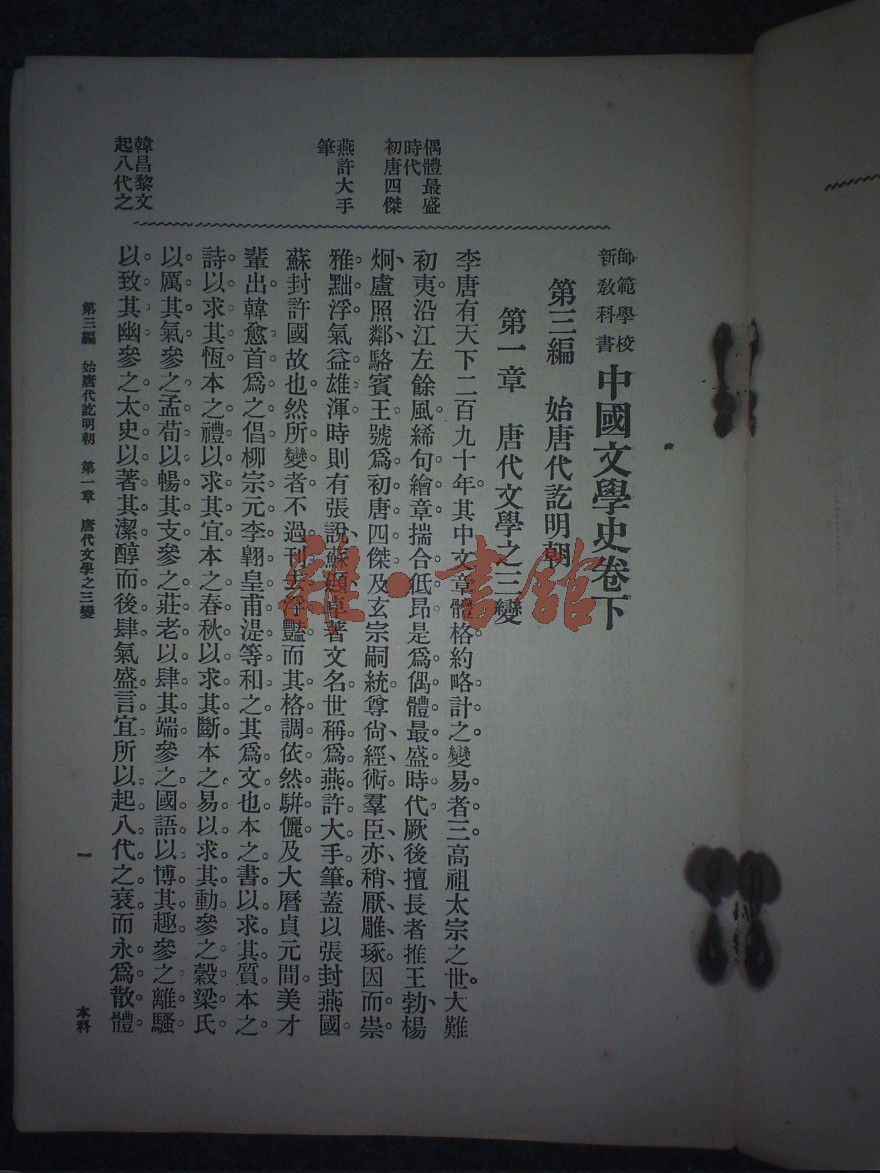 師範學校
新敎科書
中國文學史卷下
第三編　始唐代訖明朝
第一章　唐代文學之三變
偶體最盛
時代
初唐四傑
燕許大手
筆
韓昌黎文
起八代之
李唐有天下二百九十年。其中文章體格約略計之。變易者三。高祖太宗之世。大難
初夷。沿江左餘風。絺句繪章。揣合低昂。是爲偶體最盛時代。厥後擅長者。推王勃、楊
烱、盧照鄰、駱賓王。號爲初唐四傑。及玄宗嗣統。尊尙經術。羣臣亦稍厭雕琢。因而崇
雅黜浮。氣益雄渾。時則有張說、蘇頲。卓著文名。世稱爲燕許大手筆。蓋以張封燕國
蘇封許國故也。然所變者。不過刊去浮豔。而其格調依然騈儷。及大曆貞元間。美才
輩出。韓愈首爲之倡。柳宗元李翺皇甫湜等和之。其爲文也。本之書以求其質。本之
詩以求其恆。本之禮以求其宜。本之春秋以求其斷。本之易以求其動。參之穀梁氏
以厲其氣。參之孟荀以暢其支。參之莊老以肆其端。參之國語以博其趣。參之離騷
以致其幽。參之太史以著其潔。醇而後肆。氣盛言宜。所以起八代之衰。而永爲散體
第三編　始唐代訖明朝　第一章　唐代文學之三變
一
本科
雜·書館